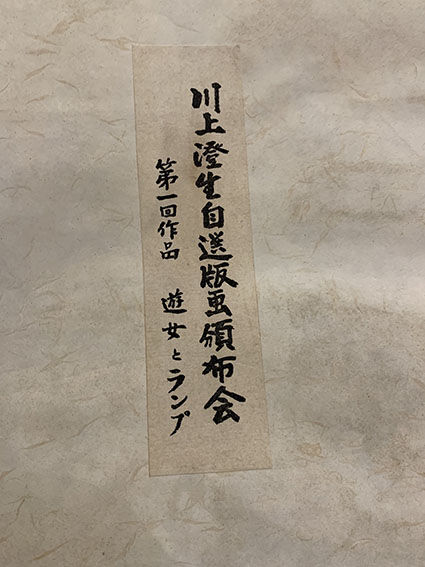 川上澄生自選版画頒布会
第一回作品　遊女とランプ